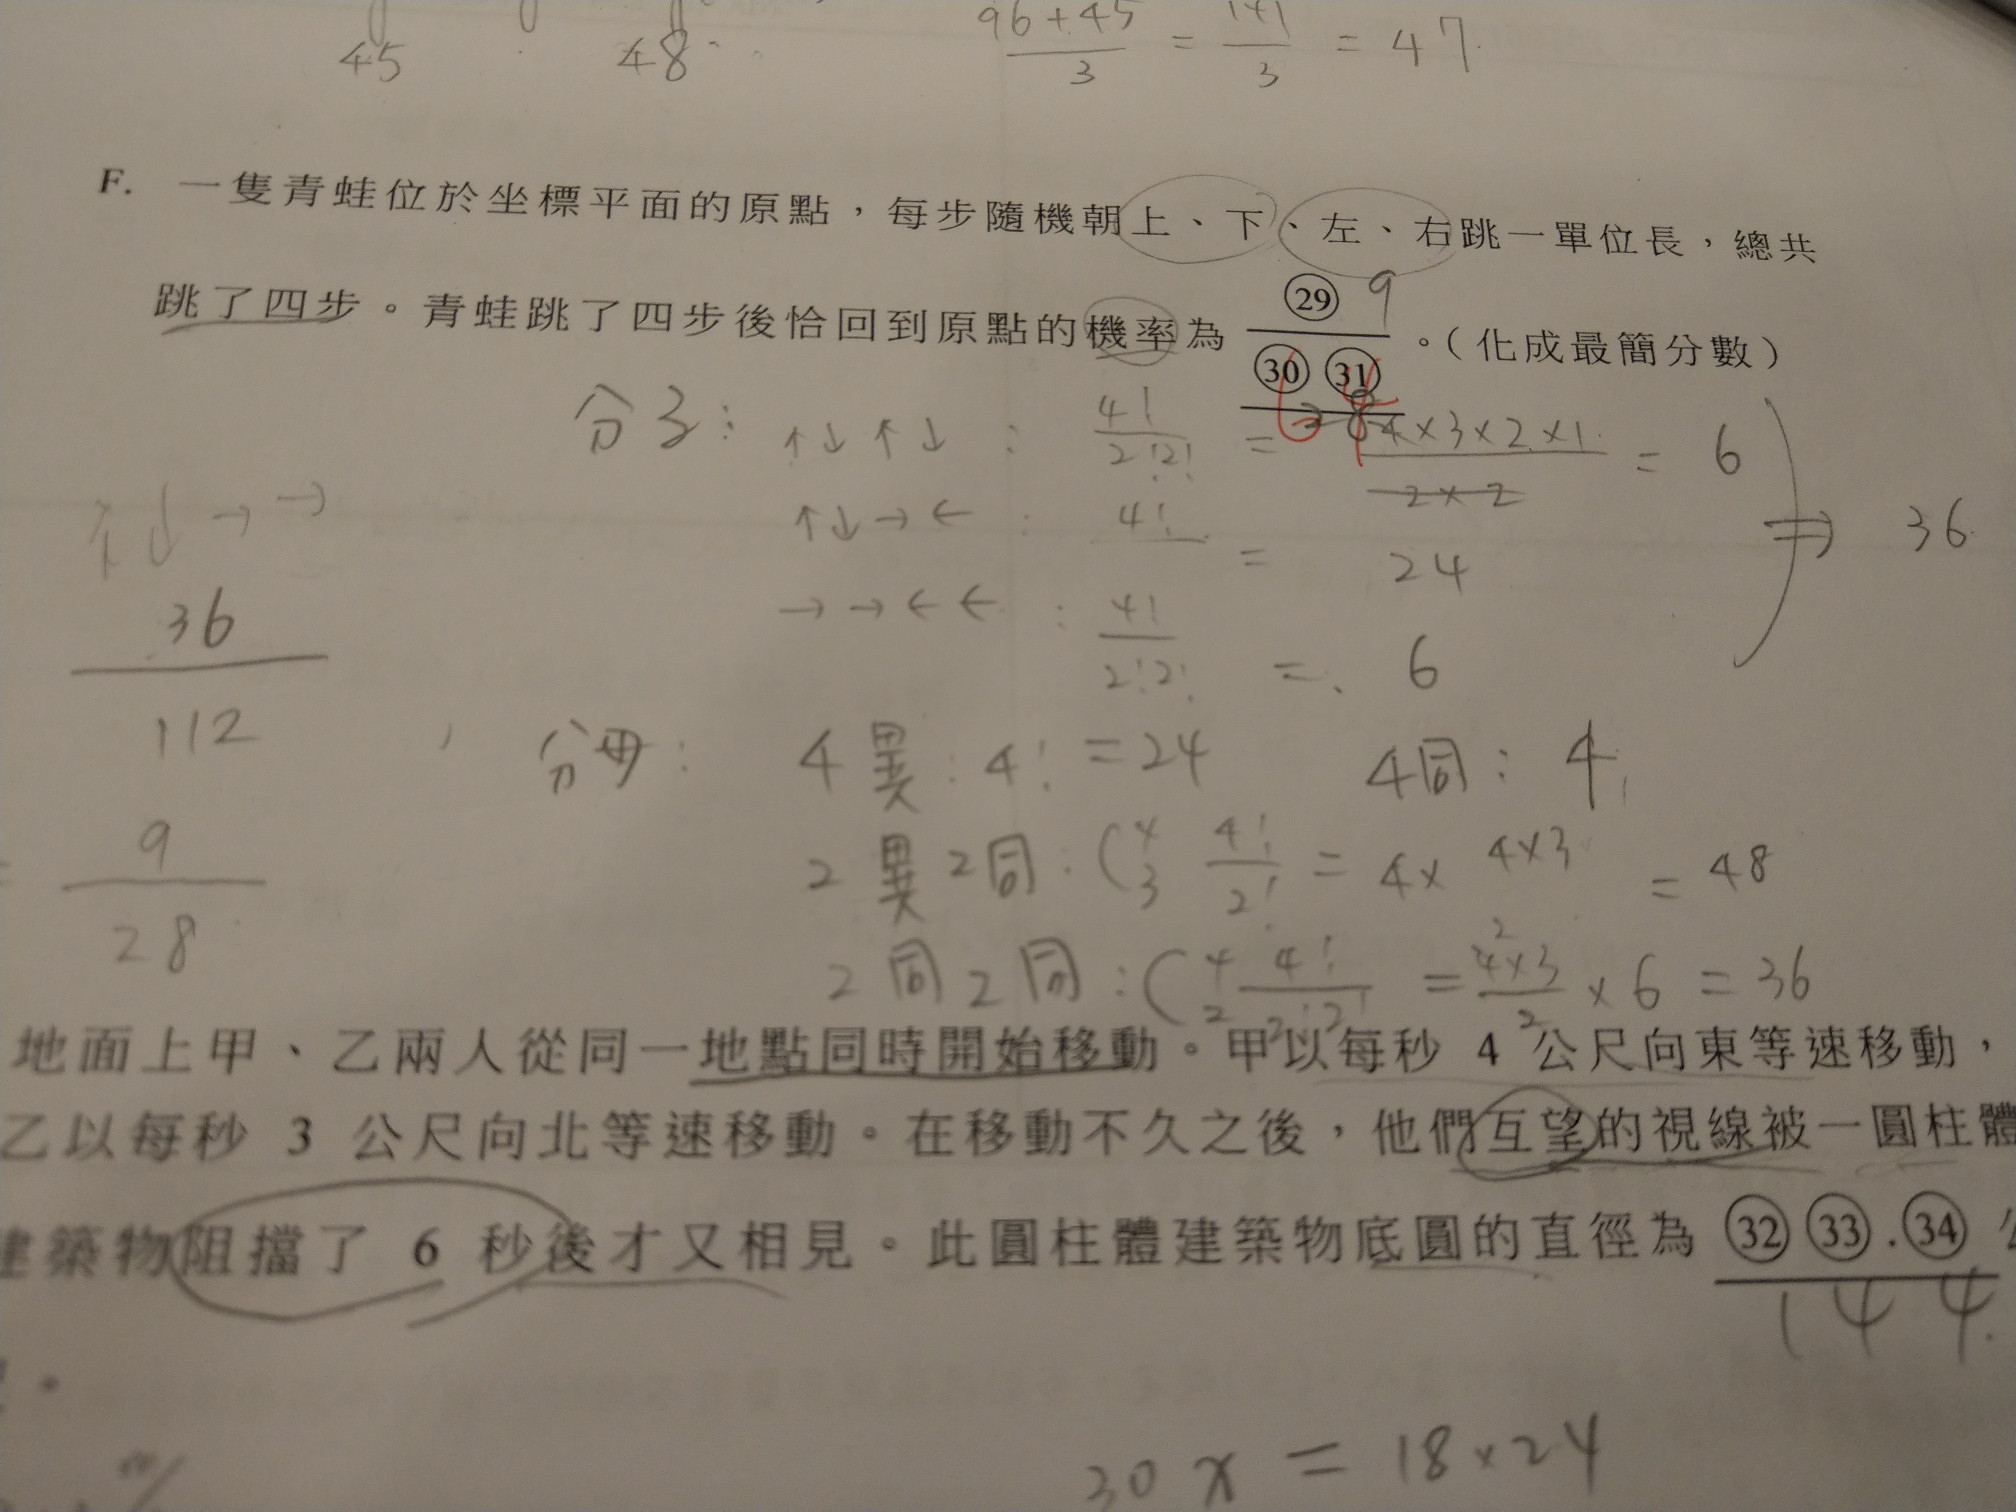 45 48 96+45/3 = 141/3 = 47.
F. 一隻青蛙位於坐標平面的原點，每步隨機朝上、下、左、右跳一單位長，總共
㉙ 9
跳了四步。青蛙跳了四步後恰回到原點的機率為 。（化成最簡分數）
㉚ ㉛
分子： ↑↓↑↓ : 4!/2!2! = 4×3×2×1/2×2 = 6
↑↓→→
↑↓→← : 4! = 24 ⇒ 36
→→←← : 4!/2!2! = 6
36/112
分母： 4異：4! = 24 4同：4
2異2同：C 4 3 4!/2! = 4× 4×3 = 48
= 9/28
2同2同：C 4 2 4!/2!2! = 4×3/2 × 6 = 36
地面上甲、乙兩人從同一地點同時開始移動。甲以每秒 4 公尺向東等速移動，
乙以每秒 3 公尺向北等速移動。在移動不久之後，他們互望的視線被一圓柱體
建築物阻擋了 6 秒後才又相見。此圓柱體建築物底圓的直徑為 ㉜㉝.㉞
1 4 4
30 x = 18×24